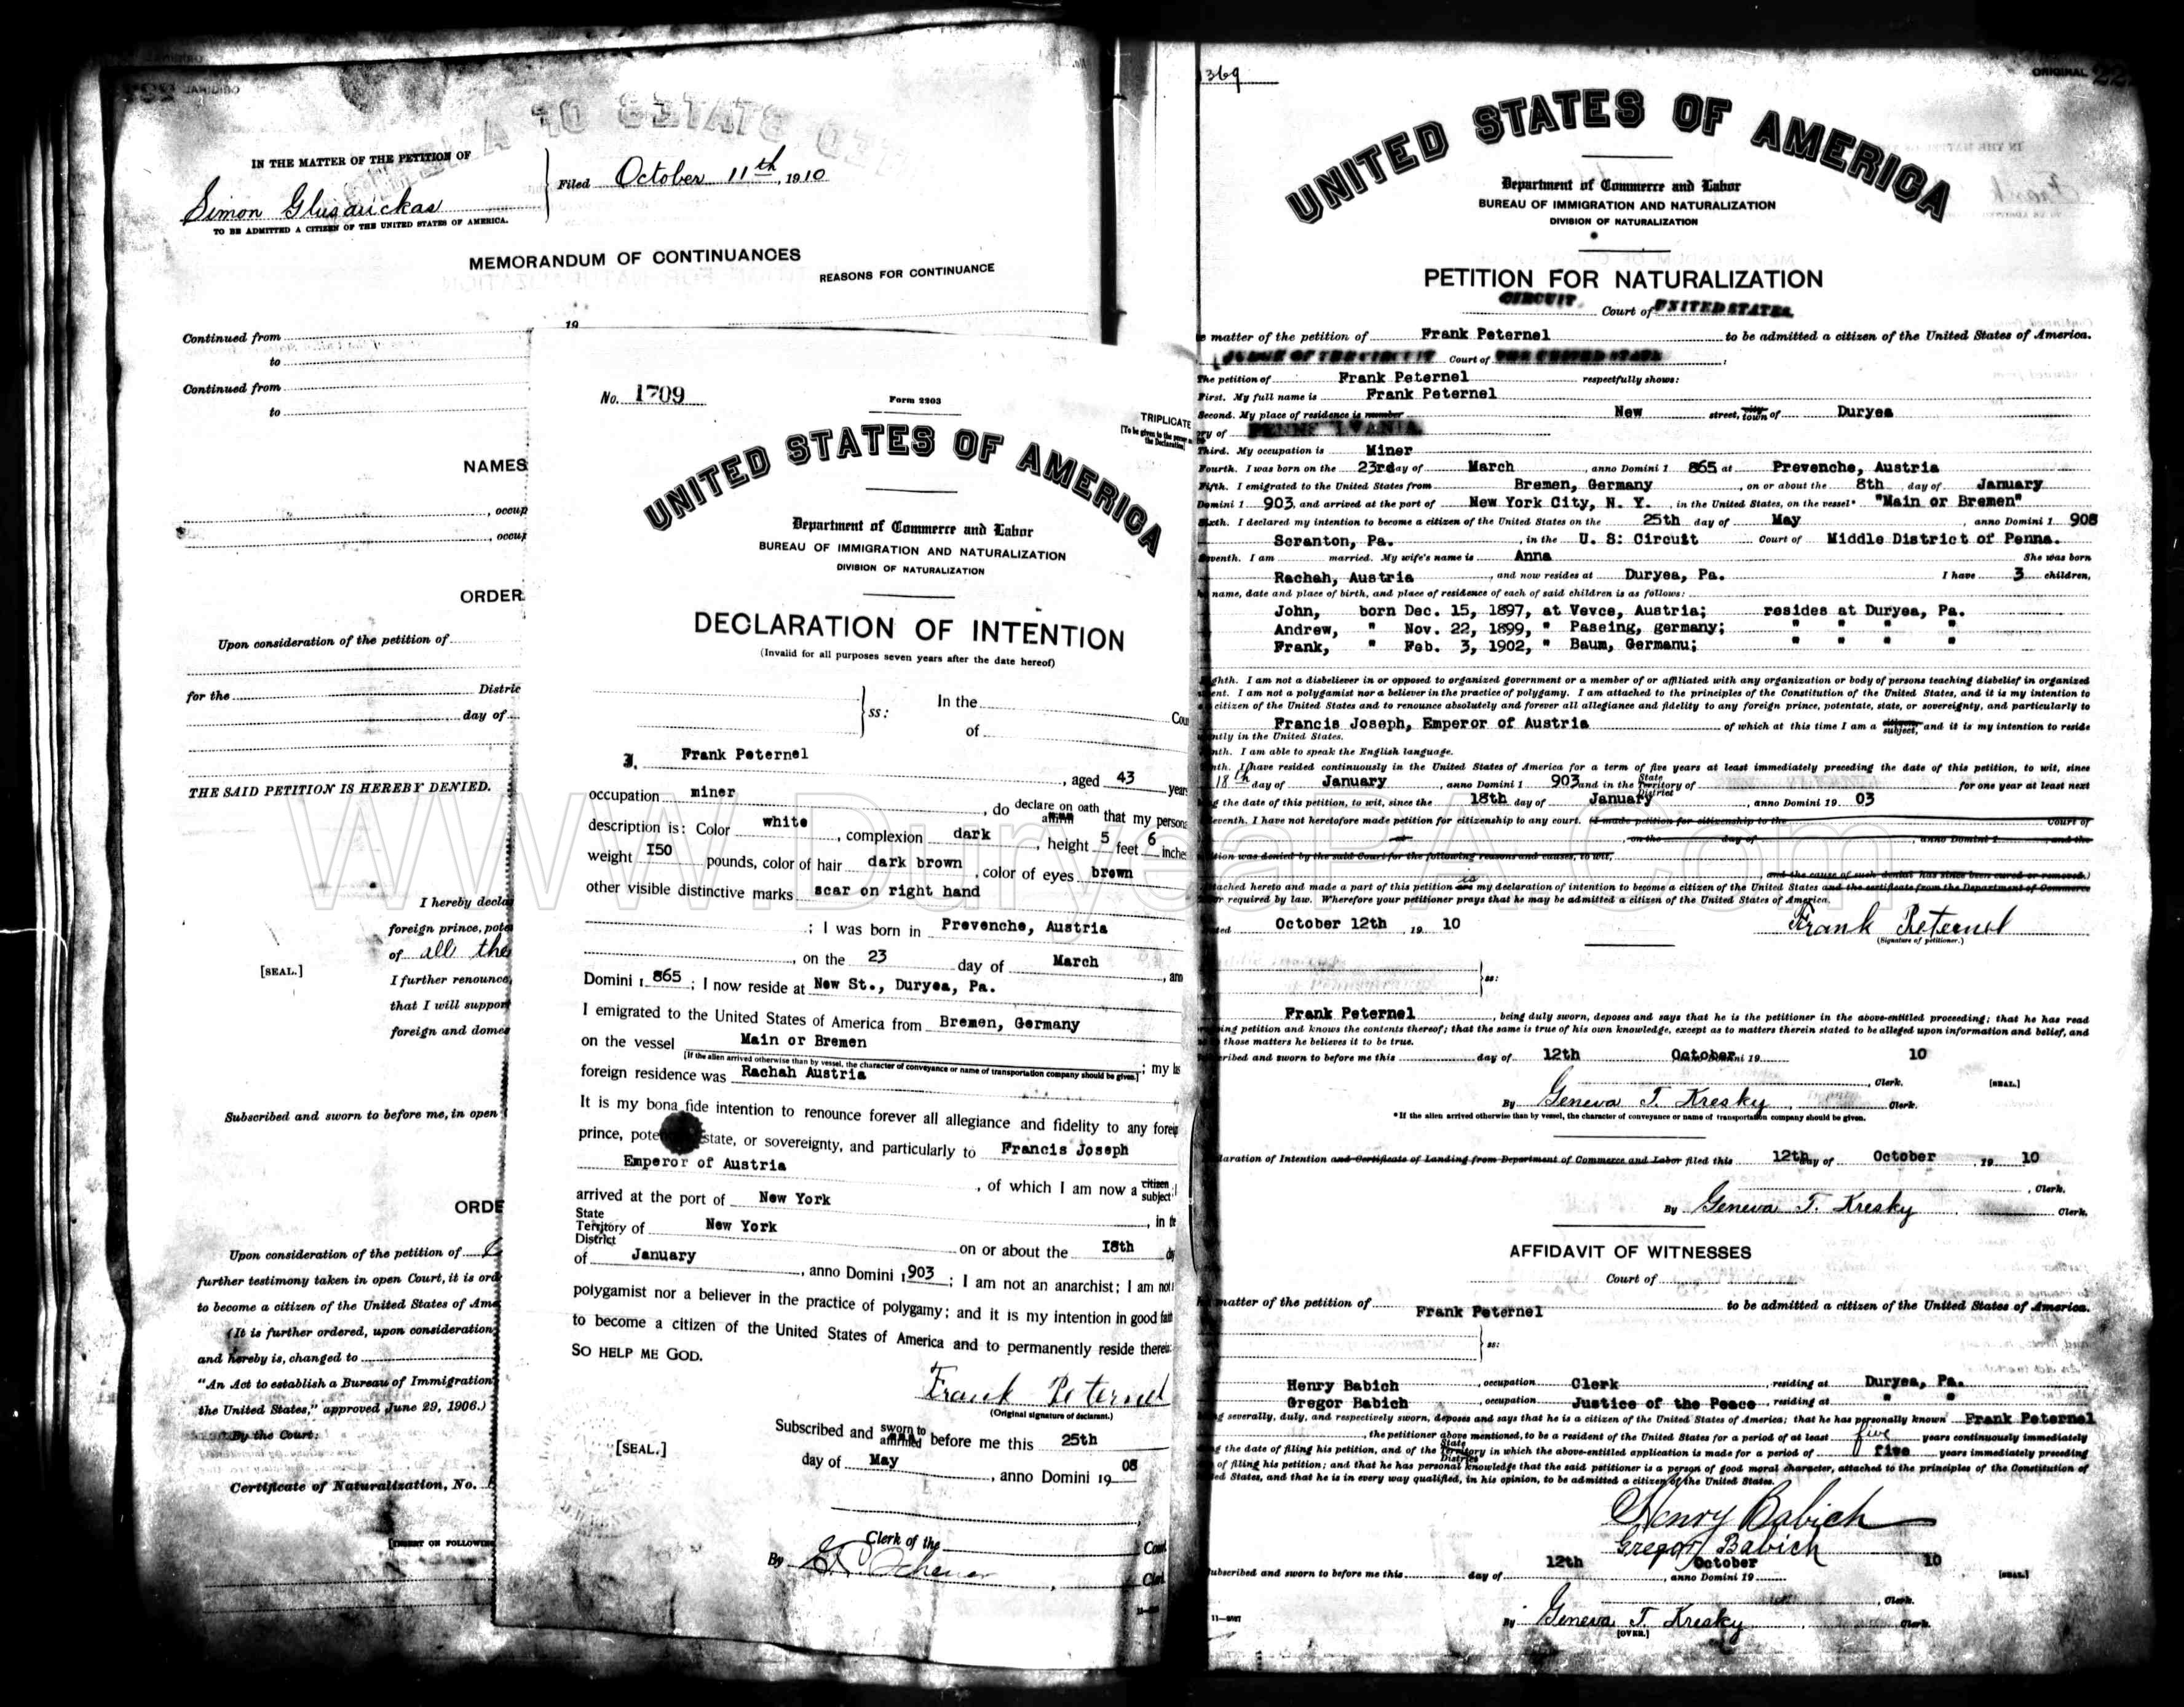 IN THE MATTER OF THE PETITION OF
Simon Glusauckas
TO BE ADMITTED A CITIZEN OF THE UNITED STATES OF AMERICA.
Filed October 11th, 1910
MEMORANDUM OF CONTINUANCES
REASONS FOR CONTINUANCE
19
Continued from
to
Continued from
to
NAMES
, occup
, occup
ORDER
Upon consideration of the petition of
for the Distric
day of
THE SAID PETITION IS HEREBY DENIED.
I hereby decla
foreign prince, pote
of all the
[SEAL.]
I further renounce
that I will support
foreign and domes
Subscribed and sworn to before me, in open
ORDE
Upon consideration of the petition of
further testimony taken in open Court, it is ord
to become a citizen of the United States of Ame
(It is further ordered, upon consideration
and hereby is, changed to
"An Act to establish a Bureau of Immigration
the United States," approved June 29, 1906.)
By the Court:
Certificate of Naturalization, No.
No. 1709
Form 2203
TRIPLICATE
UNITED STATES OF AMERICA
Department of Commerce and Labor
BUREAU OF IMMIGRATION AND NATURALIZATION
DIVISION OF NATURALIZATION
DECLARATION OF INTENTION
(Invalid for all purposes seven years after the date hereof)
ss:
In the Cou
of
I, Frank Peternel, aged 43 years
occupation miner, do declare on oath affirm that my persona
description is: Color white, complexion dark, height 5 feet 6 inches
weight I50 pounds, color of hair dark brown, color of eyes brown
other visible distinctive marks scar on right hand
; I was born in Prevenche, Austria
, on the 23 day of March, an
Domini 1 865; I now reside at New St., Duryea, Pa.
I emigrated to the United States of America from Bremen, Germany
on the vessel Main or Bremen
[If the alien arrived otherwise than by vessel, the character of conveyance or name of transportation company should be given.]; my las
foreign residence was Rachah Austria
It is my bona fide intention to renounce forever all allegiance and fidelity to any foreig
prince, pote state, or sovereignty, and particularly to Francis Joseph
Emperor of Austria, of which I am now a citizen subject; I
arrived at the port of New York, in the
State Territory District of New York on or about the I8th da
of January, anno Domini 1 903; I am not an anarchist; I am not a
polygamist nor a believer in the practice of polygamy; and it is my intention in good faith
to become a citizen of the United States of America and to permanently reside therein:
SO HELP ME GOD.
Frank Peternel
(Original signature of declarant.)
Subscribed and sworn to affirmed before me this 25th
[SEAL.]
day of May, anno Domini 19 08
Clerk of the Court
By
369
ORIGINAL 22
UNITED STATES OF AMERICA
Department of Commerce and Labor
BUREAU OF IMMIGRATION AND NATURALIZATION
DIVISION OF NATURALIZATION
PETITION FOR NATURALIZATION
CIRCUIT Court of UNITED STATES
matter of the petition of Frank Peternel to be admitted a citizen of the United States of America.
JUDGE OF THE CIRCUIT Court of THE UNITED STATES:
The petition of Frank Peternel respectfully shows:
First. My full name is Frank Peternel
Second. My place of residence is number New street, city town of Duryea
ry of PENNSYLVANIA
Third. My occupation is Miner
Fourth. I was born on the 23rd day of March, anno Domini 1 865 at Prevenche, Austria
Fifth. I emigrated to the United States from Bremen, Germany, on or about the 8th day of January
Domini 1 903, and arrived at the port of New York City, N. Y., in the United States, on the vessel* "Main or Bremen"
Sixth. I declared my intention to become a citizen of the United States on the 25th day of May, anno Domini 1 908
Scranton, Pa., in the U. S: Circuit Court of Middle District of Penna.
Seventh. I am married. My wife's name is Anna She was born
Rachah, Austria, and now resides at Duryea, Pa. I have 3 children,
name, date and place of birth, and place of residence of each of said children is as follows:
John, born Dec. 15, 1897, at Vevce, Austria; resides at Duryea, Pa.
Andrew, " Nov. 22, 1899, " Paseing, germany; " " " "
Frank, " Feb. 3, 1902, " Baum, Germanu; " " " "
ghth. I am not a disbeliever in or opposed to organized government or a member of or affiliated with any organization or body of persons teaching disbelief in organized
ent. I am not a polygamist nor a believer in the practice of polygamy. I am attached to the principles of the Constitution of the United States, and it is my intention to
citizen of the United States and to renounce absolutely and forever all allegiance and fidelity to any foreign prince, potentate, state, or sovereignty, and particularly to
Francis Joseph, Emperor of Austria of which at this time I am a citizen subject, and it is my intention to reside
ntly in the United States.
nth. I am able to speak the English language.
nth. I have resided continuously in the United States of America for a term of five years at least immediately preceding the date of this petition, to wit, since
18th day of January, anno Domini 1 903 and in the State Territory District of for one year at least next
g the date of this petition, to wit, since the 18th day of January, anno Domini 19 03
eventh. I have not heretofore made petition for citizenship to any court. (I made petition for citizenship to the Court of
at on the day of, anno Domini 1 and the
ition was denied by the said Court for the following reasons and causes, to wit,
and the cause of such denial has since been cured or removed.)
tached hereto and made a part of this petition are is my declaration of intention to become a citizen of the United States and the certificate from the Department of Commerce
or required by law. Wherefore your petitioner prays that he may be admitted a citizen of the United States of America.
ated October 12th, 19 10
Frank Peternel
(Signature of petitioner.)
ss:
Frank Peternel, being duly sworn, deposes and says that he is the petitioner in the above-entitled proceeding; that he has read
ing petition and knows the contents thereof; that the same is true of his own knowledge, except as to matters therein stated to be alleged upon information and belief, and
those matters he believes it to be true.
cribed and sworn to before me this day of 12th October 19 10
, Clerk. [SEAL.]
By Geneva T. Kresky, Clerk.
*If the alien arrived otherwise than by vessel, the character of conveyance or name of transportation company should be given.
laration of Intention and Certificate of Landing from Department of Commerce and Labor filed this 12th day of October, 19 10
, Clerk.
By Geneva T. Kresky Clerk.
AFFIDAVIT OF WITNESSES
Court of
matter of the petition of Frank Peternel to be admitted a citizen of the United States of America.
ss:
Henry Babich, occupation Clerk, residing at Duryea, Pa.
Gregor Babich, occupation Justice of the Peace, residing at " "
g severally, duly, and respectively sworn, deposes and says that he is a citizen of the United States of America; that he has personally known Frank Peternel
, the petitioner above mentioned, to be a resident of the United States for a period of at least five years continuously immediately
g the date of filing his petition, and of the State Territory District in which the above-entitled application is made for a period of five years immediately preceding
of filing his petition; and that he has personal knowledge that the said petitioner is a person of good moral character, attached to the principles of the Constitution of
ed States, and that he is in every way qualified, in his opinion, to be admitted a citizen of the United States.
Henry Babich
Gregor Babich
ubscribed and sworn to before me this 12th day of October, anno Domini 19 10 [SEAL.]
, Clerk.
11-9187
By Geneva T. Kresky Clerk.
[OVER.]
WWW.DuryeaPA.Com